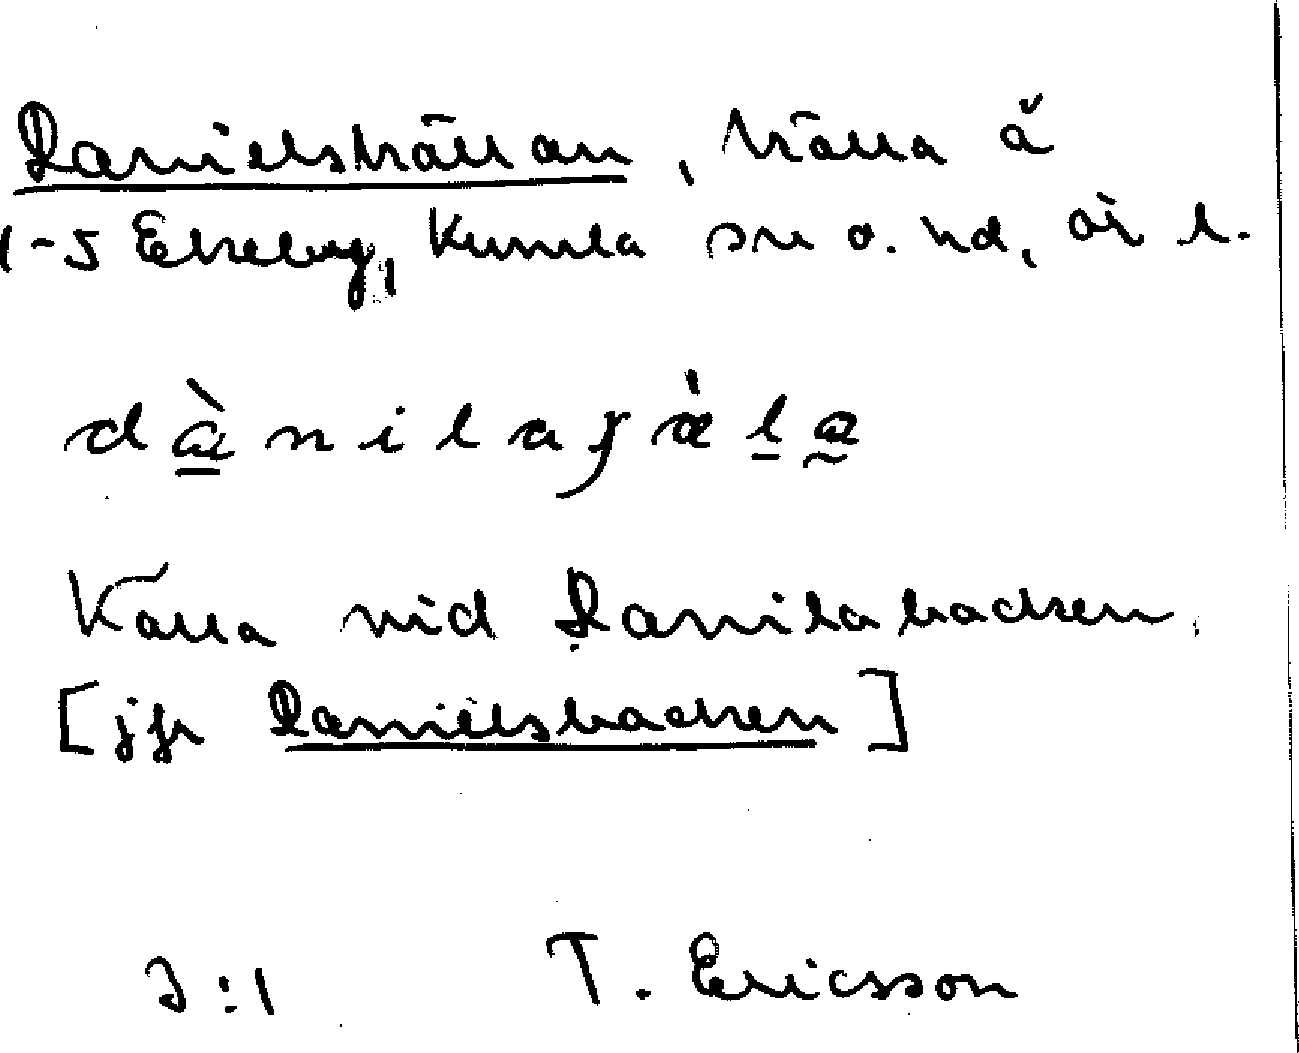 Danielskällan, källa å
1-5 Ekeby, Kumla sn o. hd, Ör l.
Källa vid Danilabacken.
[jfr Danielsbacken]
J:1 T. Ericsson